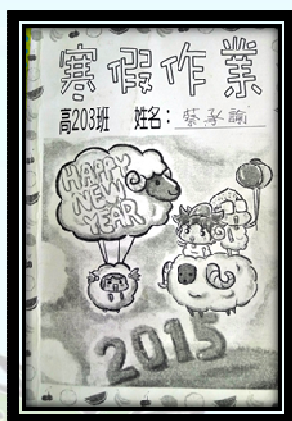 寒假作業
高203班 姓名：蔡承諭
HAPPY
NEW
YEAR
2015